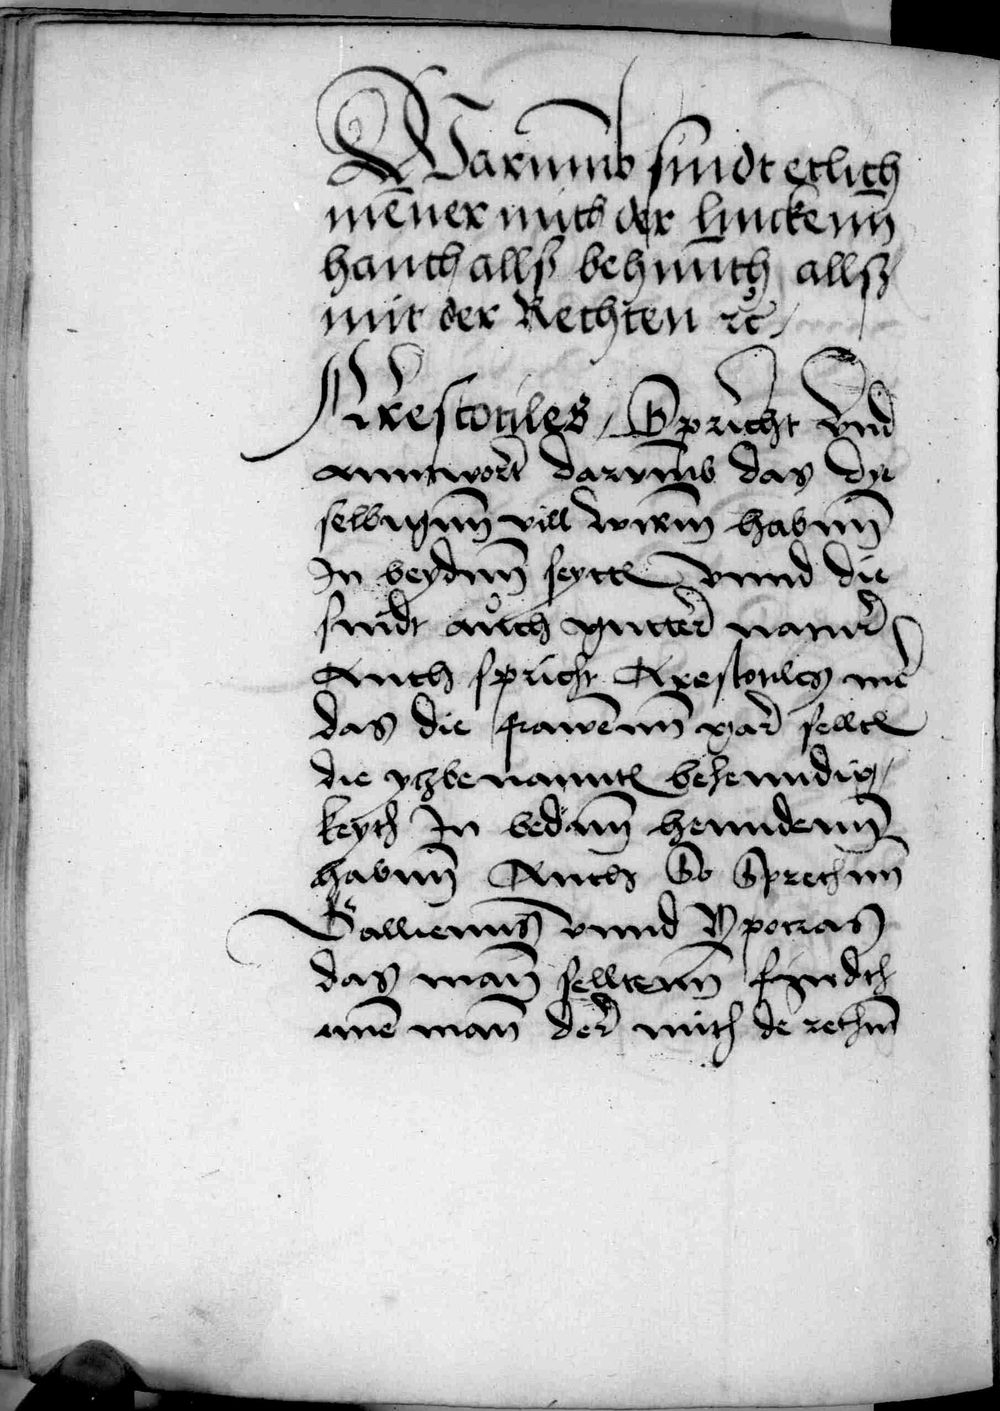 Warumb sindt etlich
mēner mith der linckenn
hanth allß behennth allß
mit der Rechten ꝛc̄
Arestotiles / Spricht vnd
anntwort darvmb das dye
selbigenn vill wirm habenn
In beydenn seytten vnnd die
sindt aůch gutter natur
Auch spricht Arestotiles me
das die frawenn gar sellten
die yzbenannten behenndig/
keyth In bedann henndenn
habenn Auch So Sprechenn
Gallienus vnnd Ypocras
das man selltenn findth
eine man der mith de rethen